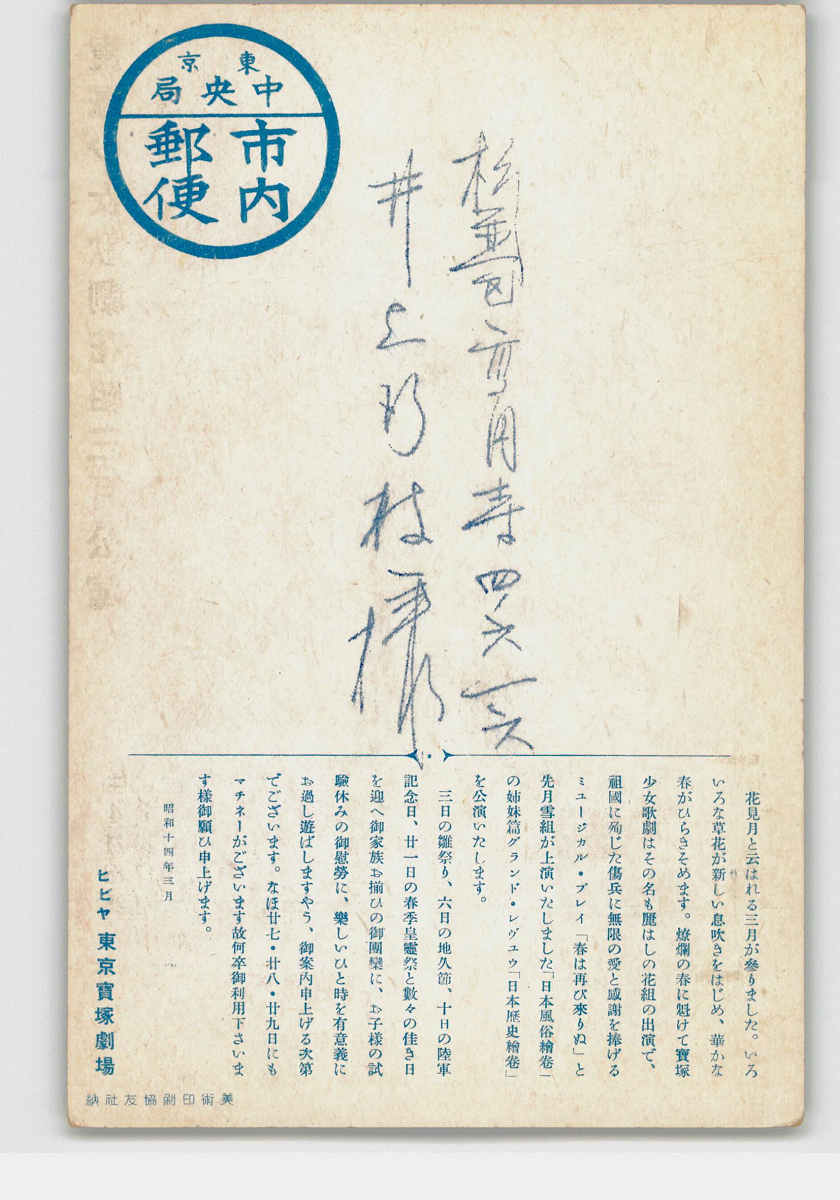 東京
中央局
市内
郵便
杉並区高円寺四ノ六一六
井上
枝様
花見月と云はれる三月が參りました。いろ
いろな草花が新しい息吹きをはじめ、華かな
春がひらきそめます。燎爛の春に魁けて寶塚
少女歌劇はその名も麗はしの花組の出演で、
祖國に殉じた傷兵に無限の愛と感謝を捧げる
ミュージカル・プレイ「春は再び來りぬ」と
先月雪組が上演いたしました「日本風俗繪卷」
の姉妹篇グランド・レヴュウ「日本歷史繪卷」
を公演いたします。
三日の雛祭り、六日の地久節、十日の陸軍
記念日、廿一日の春季皇靈祭と數々の佳き日
を迎へ御家族お揃ひの御團欒に、お子様の試
驗休みの御慰勞に、樂しいひと時を有意義に
お過し遊ばしますやう、御案内申上げる次第
でございます。なほ廿七・廿八・廿九日にも
マチネーがございます故何卒御利用下さいま
す様御願ひ申上げます。
昭和十四年三月
ヒビヤ 東京寶塚劇場
美術印刷協友社納